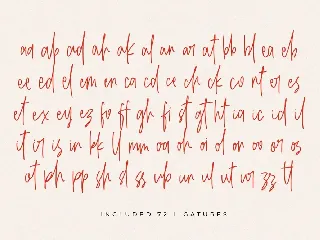 aa ab ad ah ak al an ar at bb bl ea eb
ee ed el em en ca cd ce ch ck co nt er es
et ex ey ez fo ff gh fi st gt ht ia ic id il
it ir is in kk ll mm oa oh oi ol on oo or os
ot ph pp sh sl ss ub un ul ut ur zz tl
INCLUDED 72 LIGATURES